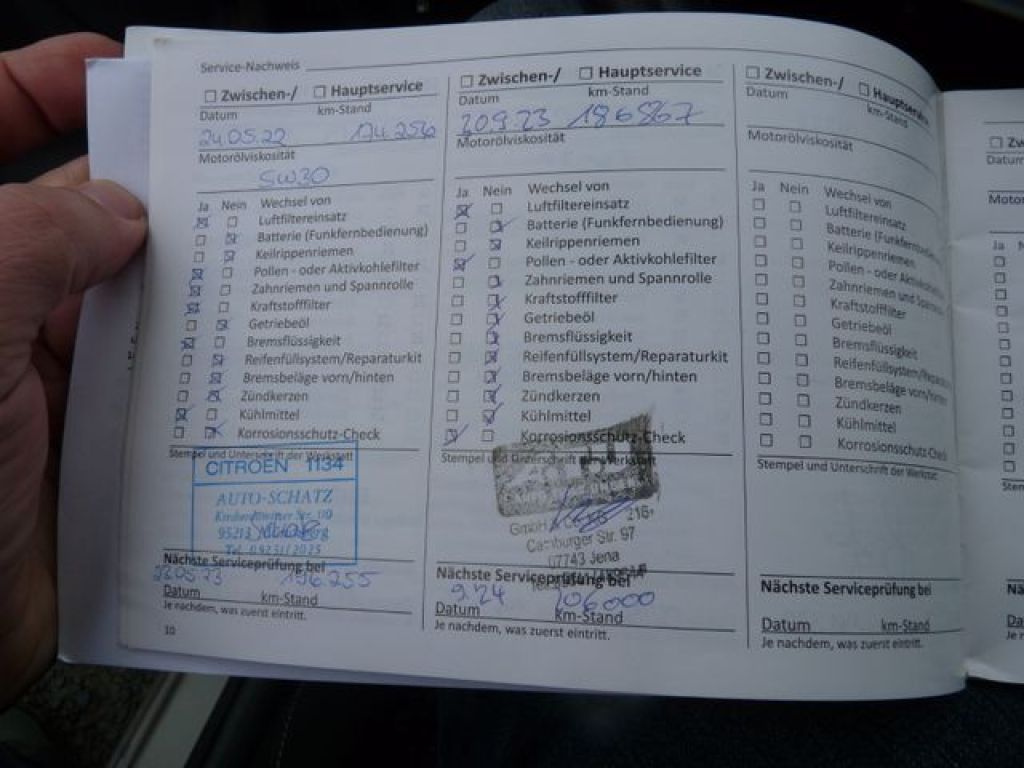 Service-Nachweis
☐ Zwischen-/ ☐ Hauptservice
Datum km-Stand
24.05.22 174.256
Motorölviskosität
5W30
Ja Nein Wechsel von
☒ ☐ Luftfiltereinsatz
☐ ☒ Batterie (Funkfernbedienung)
☐ ☒ Keilrippenriemen
☒ ☐ Pollen - oder Aktivkohlefilter
☒ ☐ Zahnriemen und Spannrolle
☒ ☐ Kraftstofffilter
☐ ☒ Getriebeöl
☒ ☐ Bremsflüssigkeit
☐ ☒ Reifenfüllsystem/Reparaturkit
☐ ☒ Bremsbeläge vorn/hinten
☐ ☒ Zündkerzen
☒ ☐ Kühlmittel
☐ ☒ Korrosionsschutz-Check
Stempel und Unterschrift der Werkstatt
CITROËN 1134
AUTO-SCHATZ
Str. 110
95213
Tel. 09251/2025
Nächste Serviceprüfung bei
23.05.23 196.255
Datum km-Stand
Je nachdem, was zuerst eintritt.
10
☐ Zwischen-/ ☐ Hauptservice
Datum km-Stand
20.9.23 186567
Motorölviskosität
Ja Nein Wechsel von
☒ ☐ Luftfiltereinsatz
☐ ☒ Batterie (Funkfernbedienung)
☐ ☒ Keilrippenriemen
☒ ☐ Pollen - oder Aktivkohlefilter
☐ ☒ Zahnriemen und Spannrolle
☐ ☒ Kraftstofffilter
☐ ☒ Getriebeöl
☐ ☒ Bremsflüssigkeit
☐ ☒ Reifenfüllsystem/Reparaturkit
☐ ☒ Bremsbeläge vorn/hinten
☐ ☒ Zündkerzen
☐ ☒ Kühlmittel
☒ ☐ Korrosionsschutz-Check
Stempel und Unterschrift der Werkstatt
GmbH 216
Camburger Str. 97
07743 Jena
Nächste Serviceprüfung bei
9.24 206000
Datum km-Stand
Je nachdem, was zuerst eintritt.
☐ Zwischen-/ ☐ Hauptservice
Datum km-Stand
Motorölviskosität
Ja Nein Wechsel von
☐ ☐ Luftfiltereinsatz
☐ ☐ Batterie (Funkfernbedienung
☐ ☐ Keilrippenriemen
☐ ☐ Pollen - oder Aktivkohlefilter
☐ ☐ Zahnriemen und Spannrolle
☐ ☐ Kraftstofffilter
☐ ☐ Getriebeöl
☐ ☐ Bremsflüssigkeit
☐ ☐ Reifenfüllsystem/Repara
☐ ☐ Bremsbeläge vorn/hinten
☐ ☐ Zündkerzen
☐ ☐ Kühlmittel
☐ ☐ Korrosionsschutz-Check
Stempel und Unterschrift der Werkstat
Nächste Serviceprüfung bei
Datum km-Stand
Je nachdem, was zuerst eintritt.
☐ Zw
Datum
Moto
Ja N
Stem
Nä
Da
Je